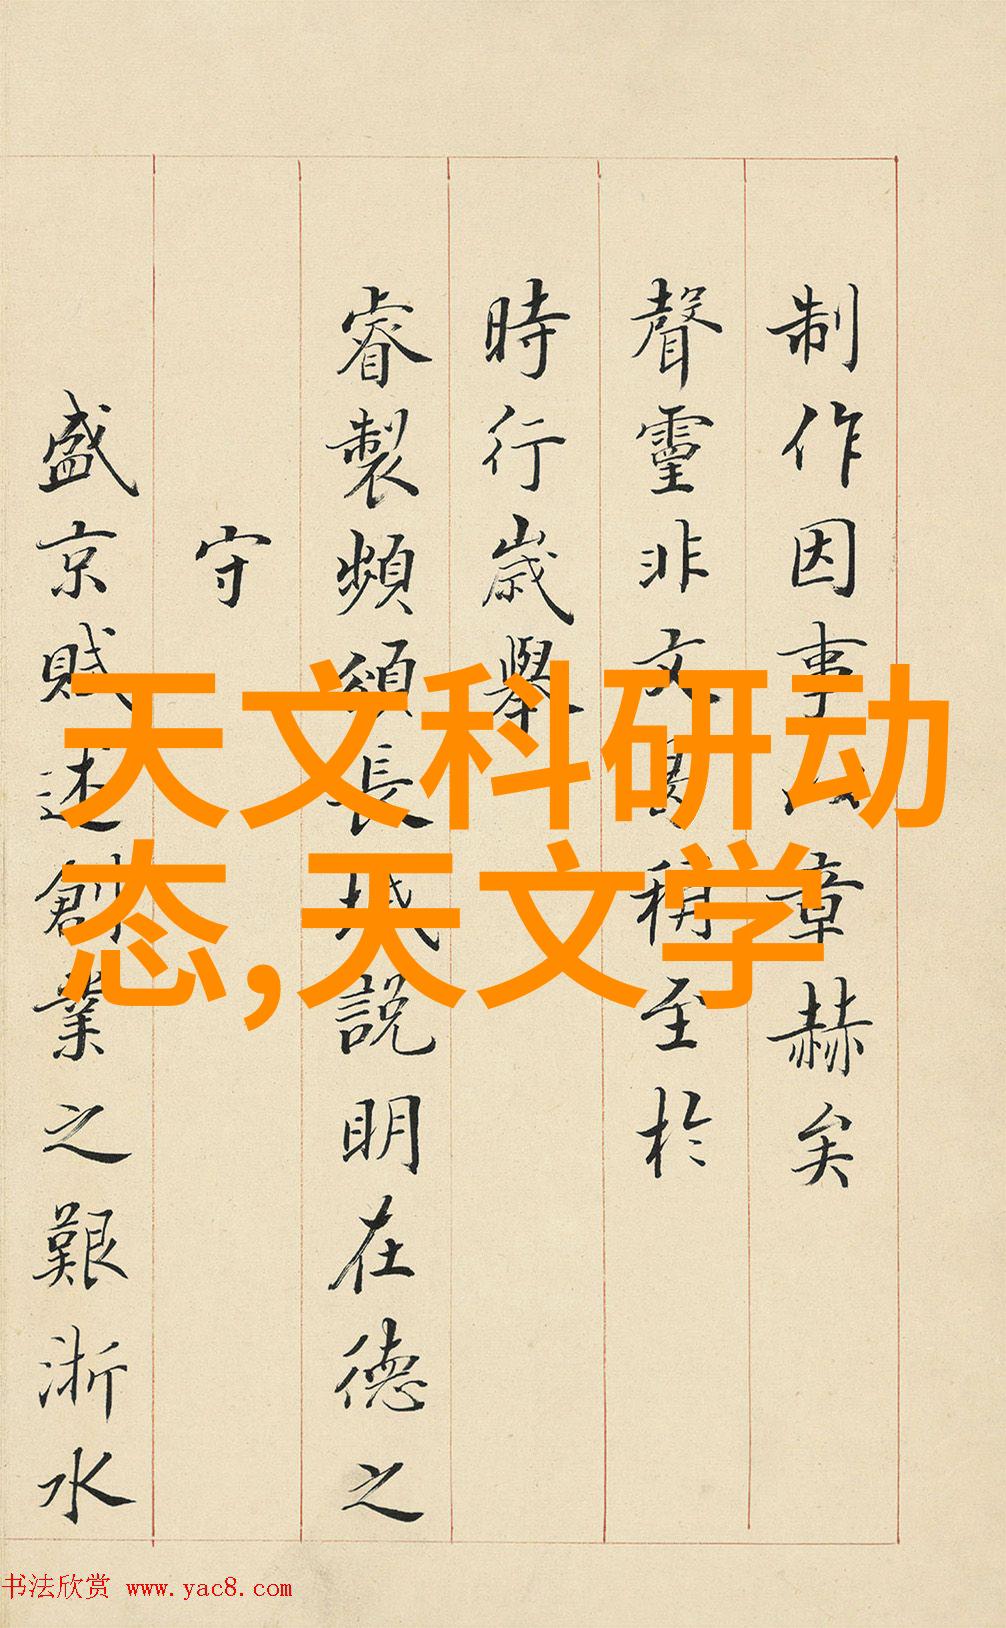 制作因事以章赫矣
聲靈非文曷稱至於
時行歲舉
睿製頻頒長城說明在德之
守
盛京賦述創業之艱浙水
天文科研动
态,天文学
书法欣赏 www.yac8.com